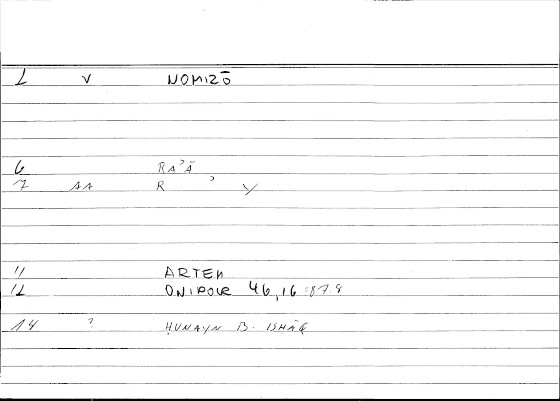 2 V NOMIZŌ
6 RAʾĀ
7 AA R ʾ Y
11 ARTEM
12 ONIROCR 46,16:87.9
14 ? ḤUNAYN B. ISḤĀQ